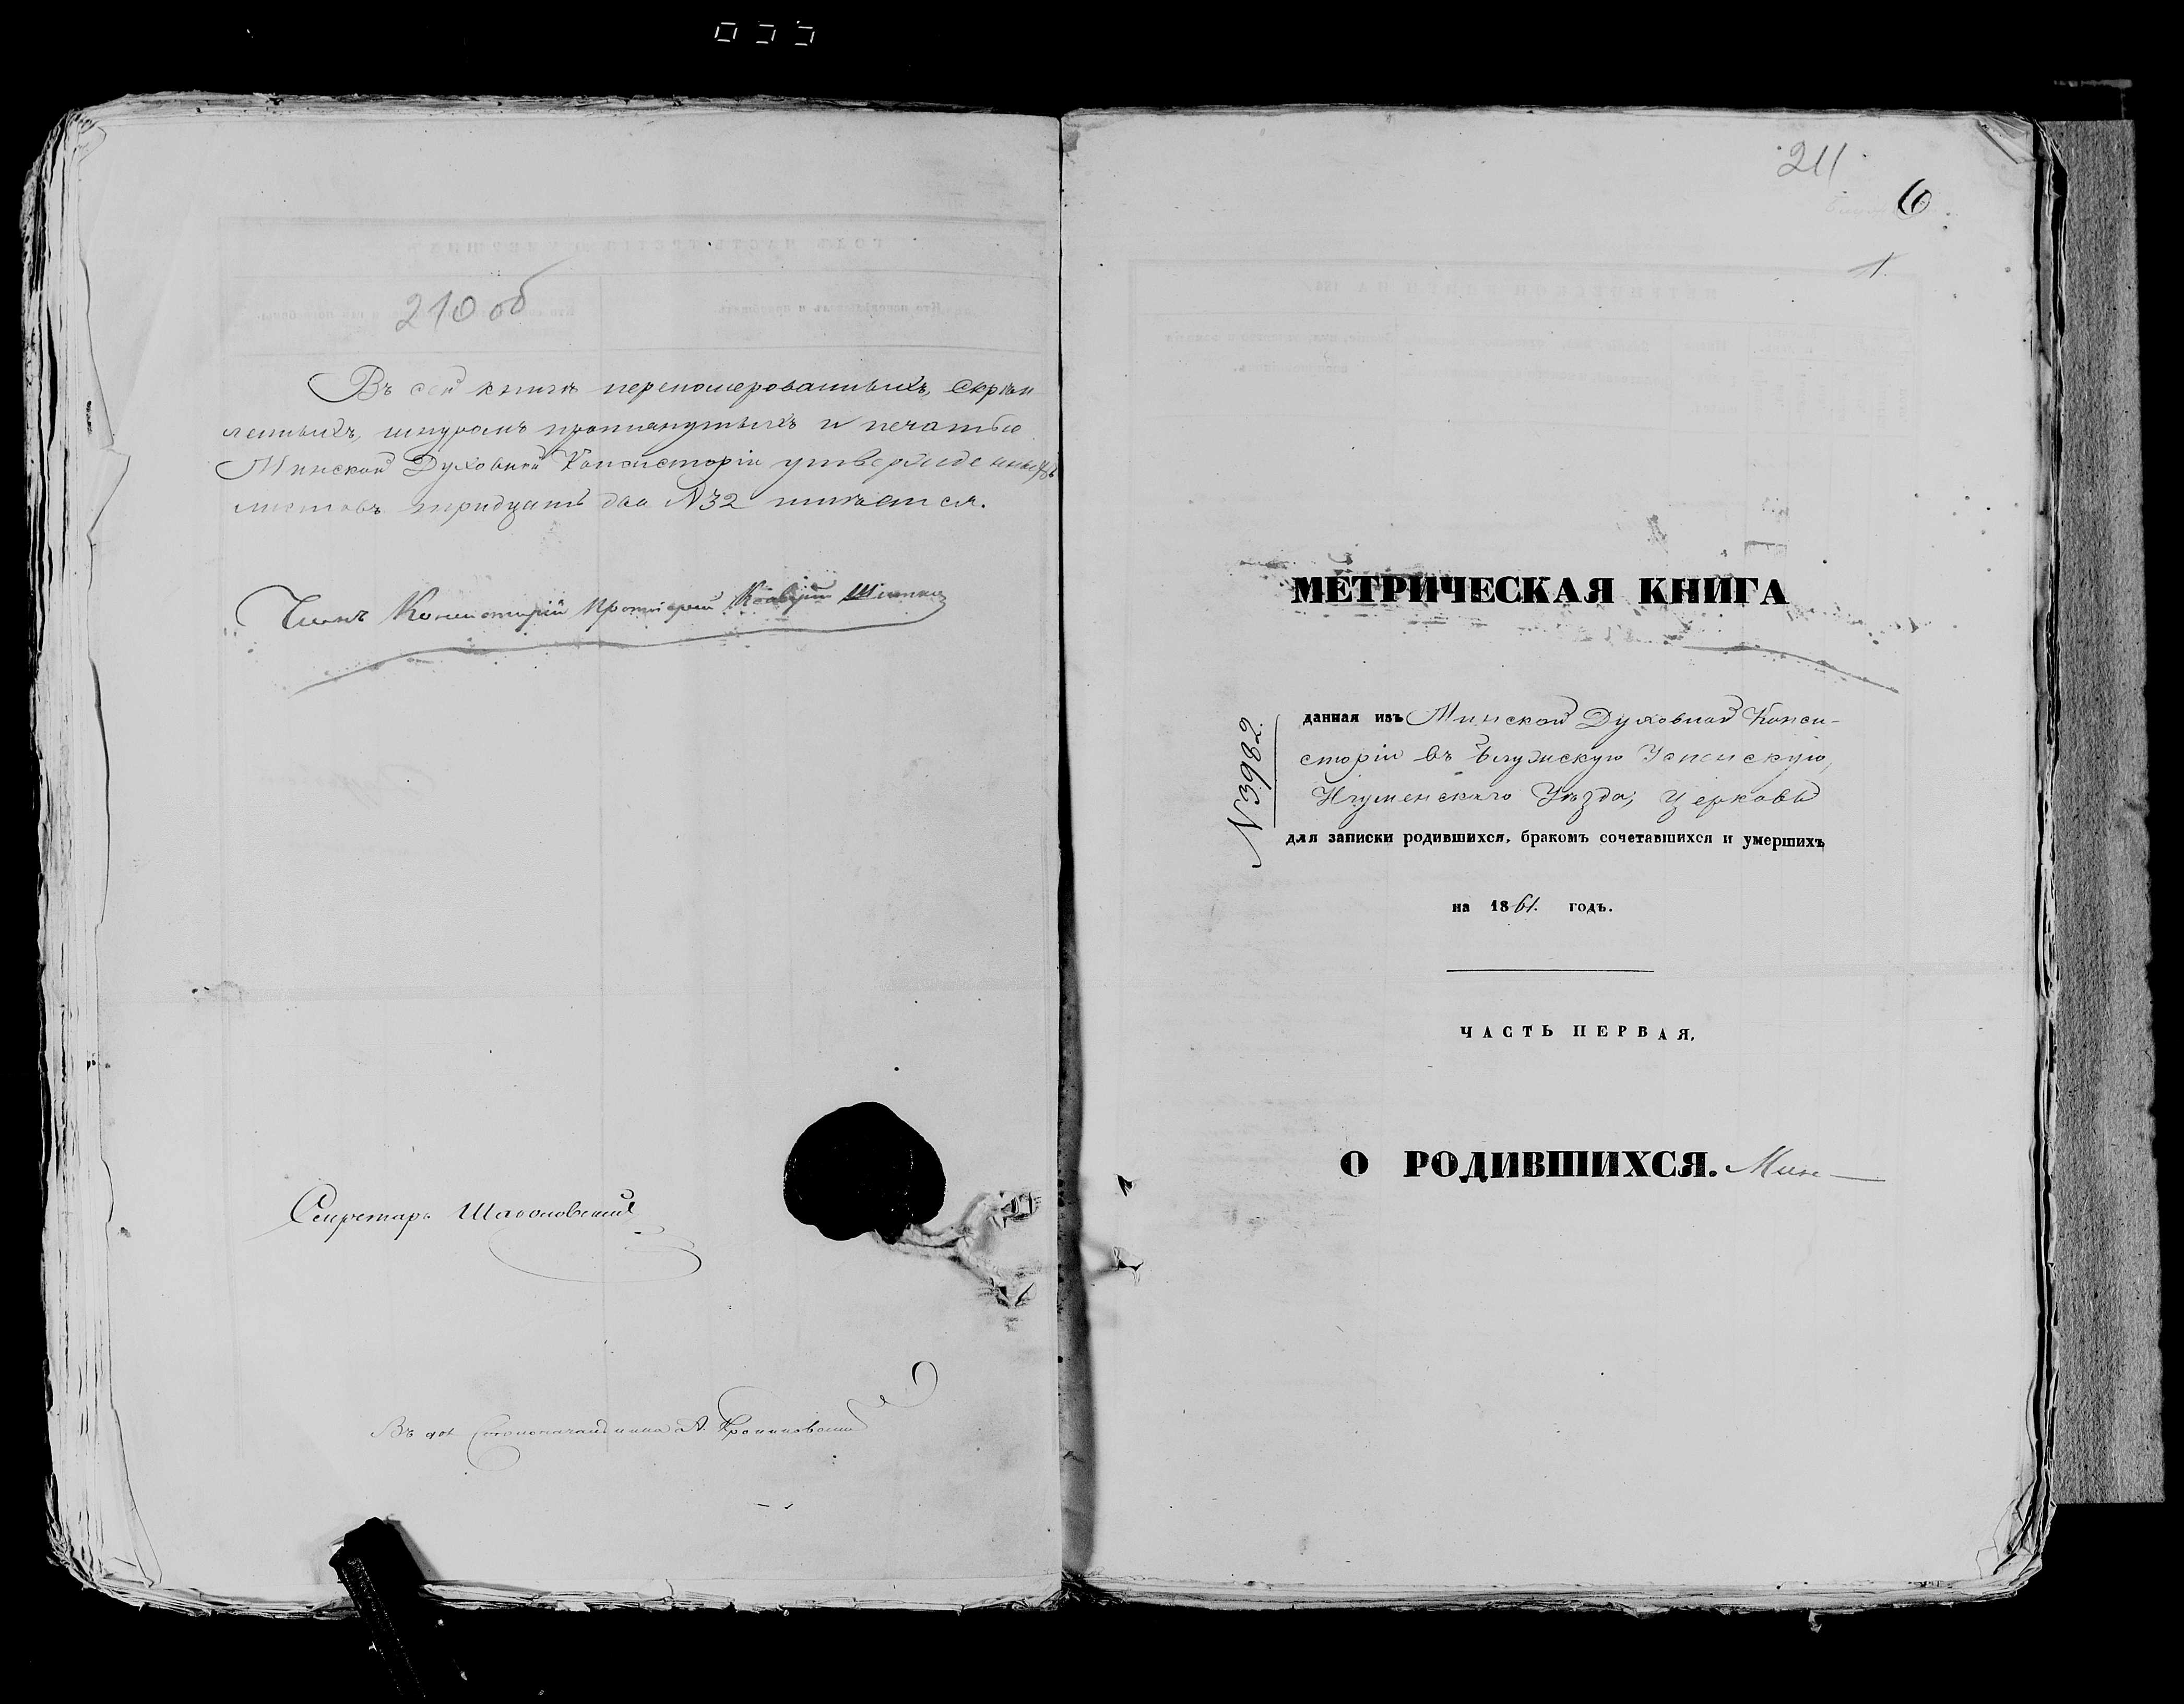 210 об
Въ сей книгѣ перенумерованныхъ, скрѣп
ленныхъ, шнуромъ протянутыхъ и печатью
Минской Духовной Консисторіи утвержденныхъ
листовъ тридцать два №32 числится.
Членъ Консисторіи Протоіерей
Секретарь
Въ дол. Столоначальника А.
211
6
1
МЕТРИЧЕСКАЯ КНИГА
№3982.
данная изъ Минской Духовной Конси-
сторіи въ Блужскую Успенскую,
Игуменскаго Уѣзда, Церковь
для записки родившихся, бракомъ сочетавшихся и умершихъ
на 1861. годъ.
ЧАСТЬ ПЕРВАЯ.
О РОДИВШИХСЯ.